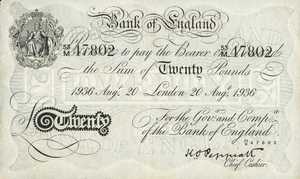 Bank of England
53/M 47802 to pay the Bearer on 53/M 47802
the Sum of Twenty Pounds
1936 Aug. 20 London 20 Aug. 1936
For the Govr. and Compa.
of the Bank of England.
Twenty
K O Peppiatt
Chief Cashier.